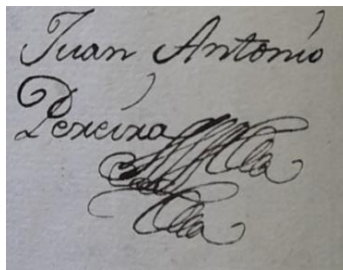 Juan Antonio
Pexeixa